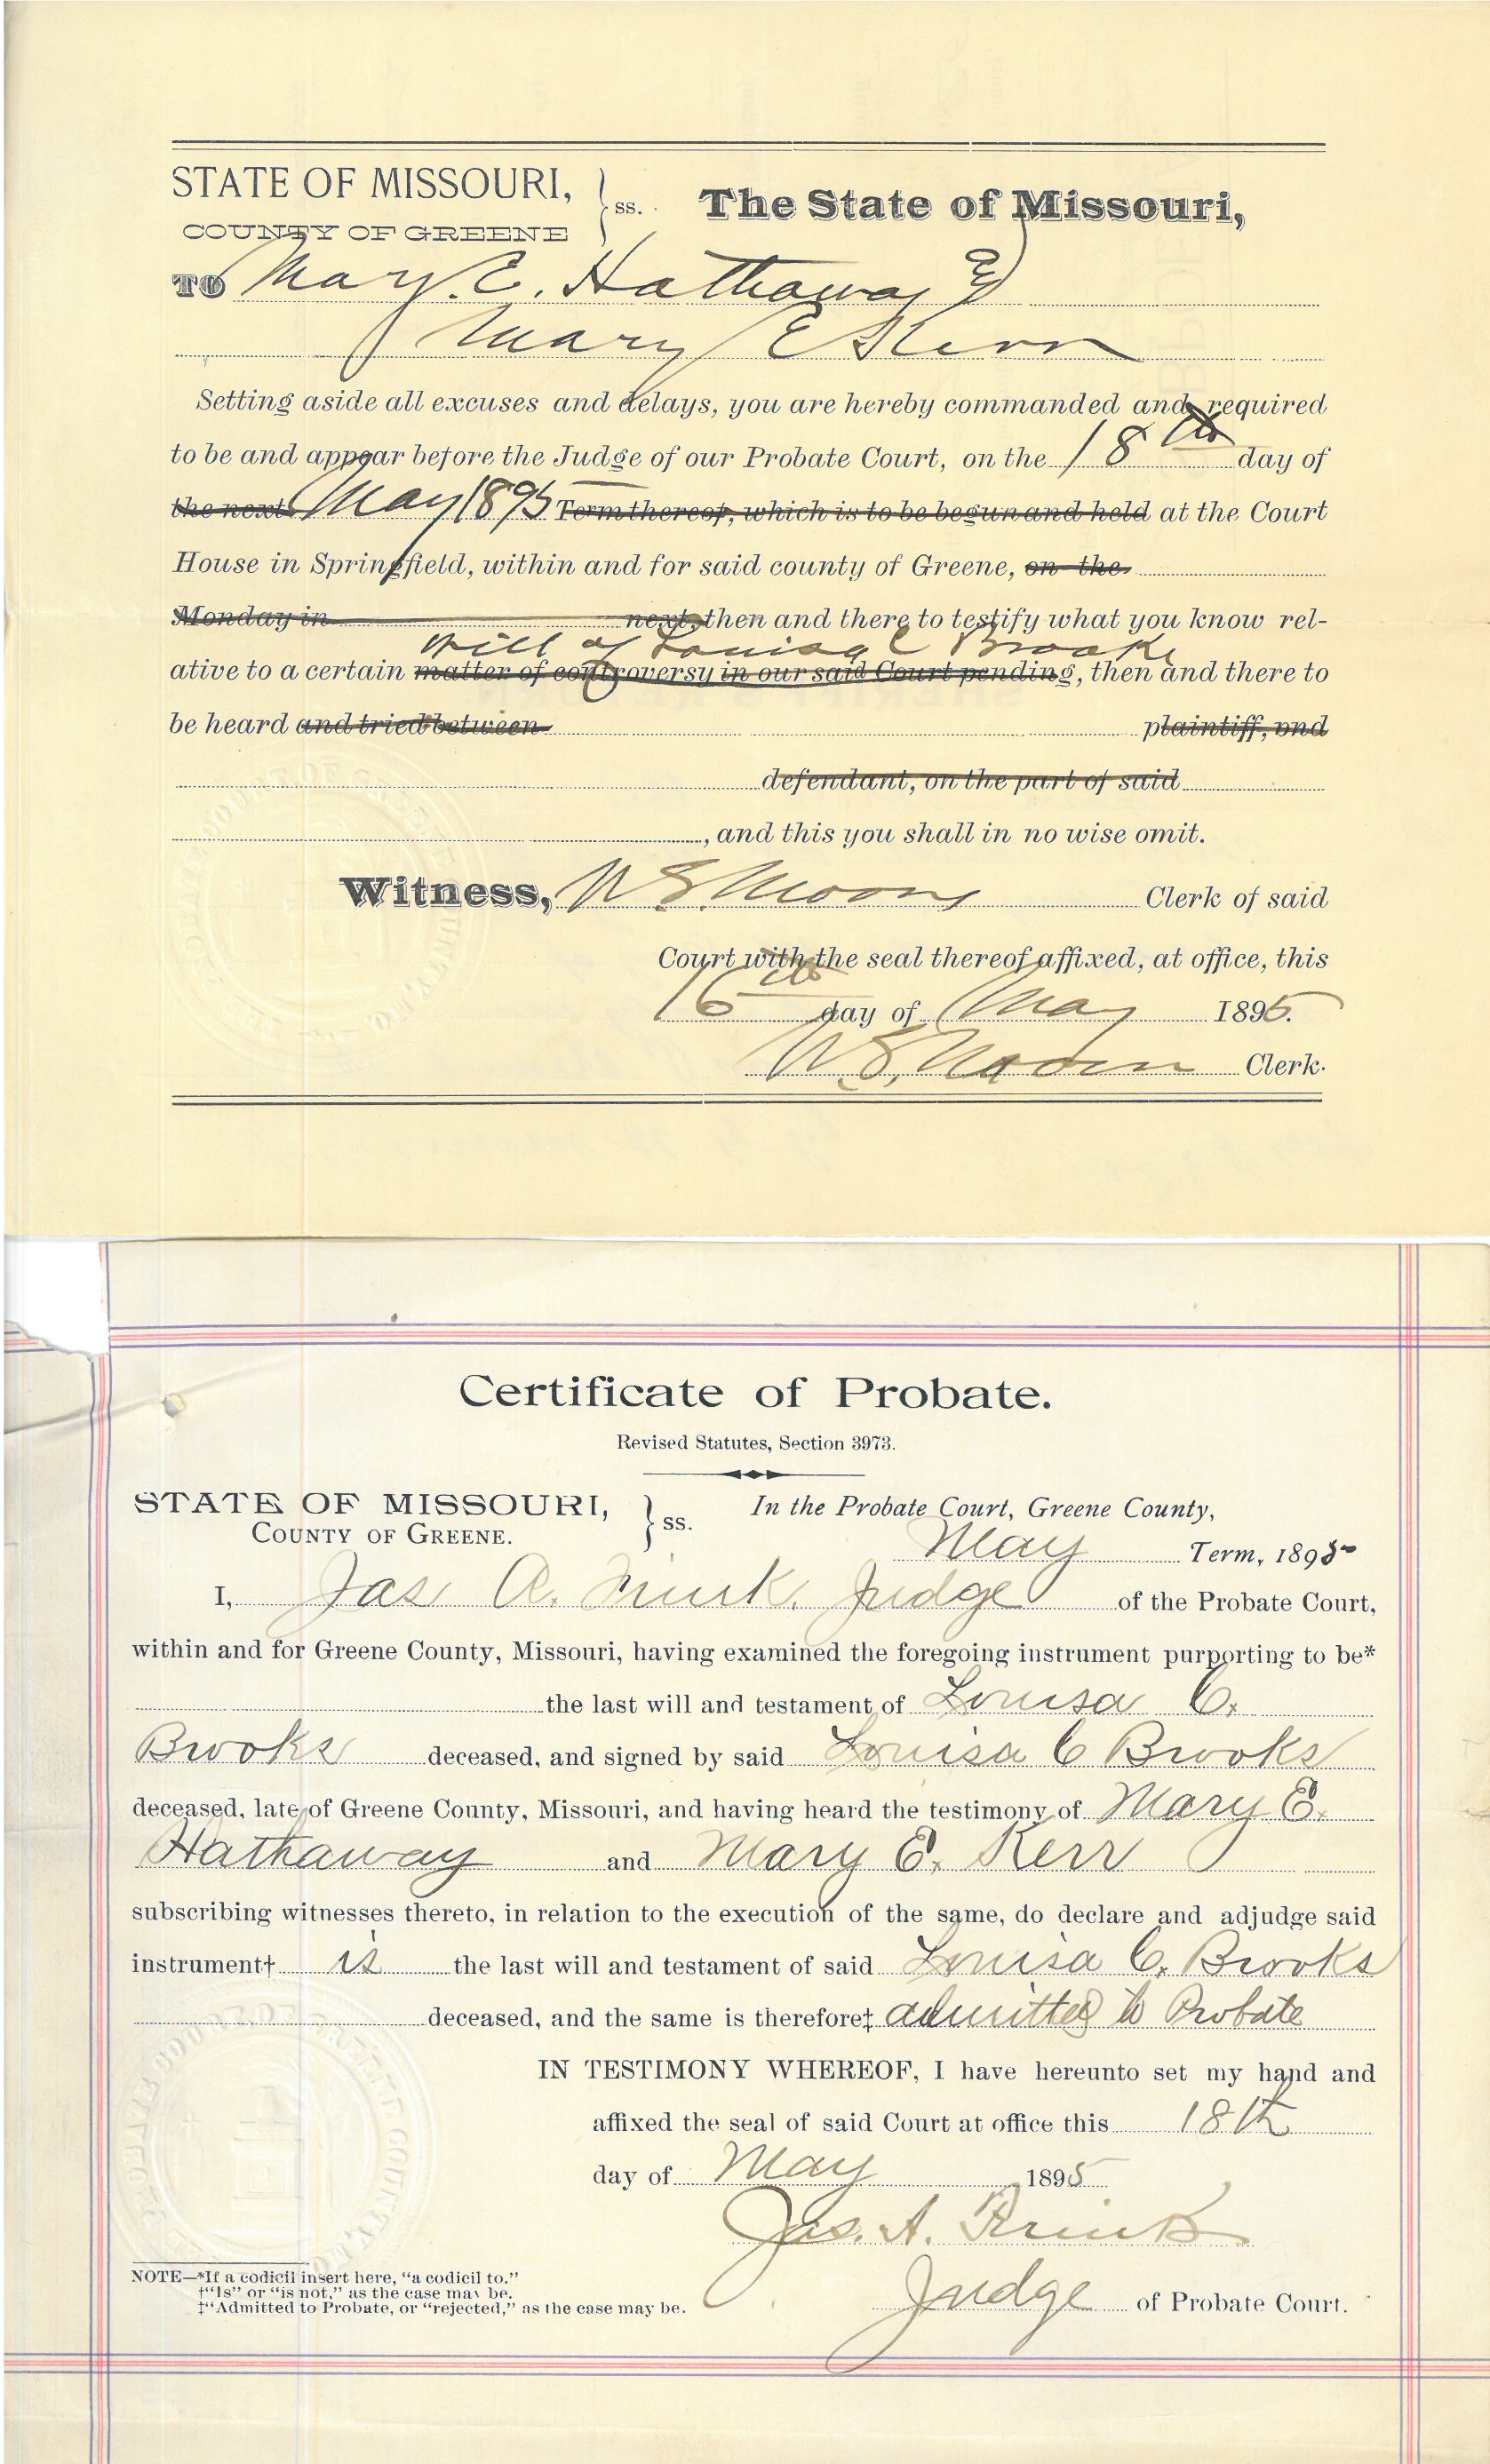 STATE OF MISSOURI, } ss. The State of Missouri,
COUNTY OF GREENE
TO Mary. E. Hathaway &
Mary E Kerr
Setting aside all excuses and delays, you are hereby commanded and required
to be and appear before the Judge of our Probate Court, on the 18th day of
the next May 1895 Term thereof, which is to be begun and held at the Court
House in Springfield, within and for said county of Greene, on the
Monday in next, then and there to testify what you know rel-
will of Louisa C Brooks
ative to a certain matter of controversy in our said Court pending, then and there to
be heard and tried between plaintiff, and
defendant, on the part of said
, and this you shall in no wise omit.
Witness, Clerk of said
Court with the seal thereof affixed, at office, this
16th day of May 1895.
Clerk.
Certificate of Probate.
Revised Statutes, Section 3973.
STATE OF MISSOURI, } ss. In the Probate Court, Greene County,
COUNTY OF GREENE. May Term, 1895
I, Jas A. Judge of the Probate Court,
within and for Greene County, Missouri, having examined the foregoing instrument purporting to be*
the last will and testament of Louisa C.
Brooks deceased, and signed by said Louisa C Brooks
deceased, late of Greene County, Missouri, and having heard the testimony of Mary E.
Hathaway and Mary E. Kerr
subscribing witnesses thereto, in relation to the execution of the same, do declare and adjudge said
instrument† is the last will and testament of said Louisa C. Brooks
deceased, and the same is therefore‡ admitted to Probate
IN TESTIMONY WHEREOF, I have hereunto set my hand and
affixed the seal of said Court at office this 18th
day of May 1895
Jas. A.
Judge of Probate Court.
NOTE—*If a codicil insert here, “a codicil to.”
†“Is” or “is not,” as the case may be.
‡“Admitted to Probate, or “rejected,” as the case may be.